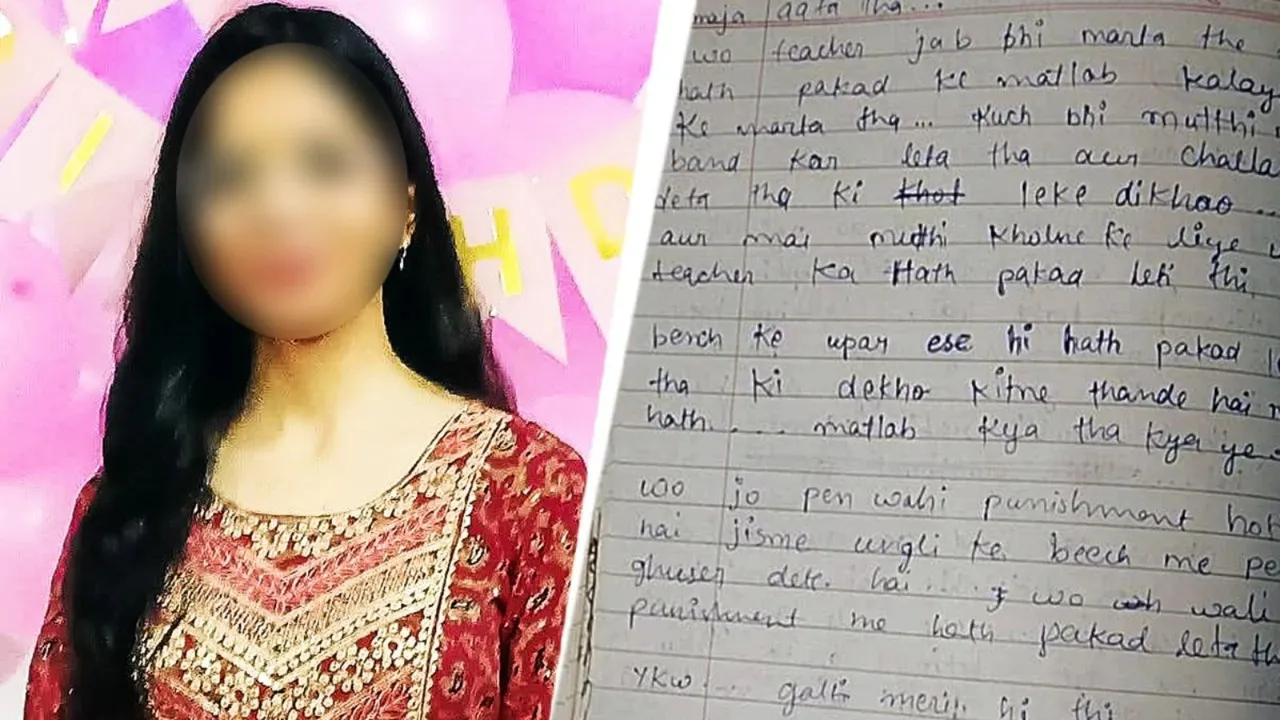 maja aata tha...
wo teacher jab bhi marta the
hath pakad ke matlab kalay
ke marta tha... kuch bhi mutthi
band kar leta tha aur challa
deta tha ki thot leke dikhao ...
aur mai mutthi kholne ke liye
teacher ka Hath pakad leti thi
bench ke upar ese hi hath pakad
tha ki dekho kitne thande hai
hath.... matlab kya tha kya ye
woo jo pen wahi punishment hot
hai jisme ungli ke beech me pe
ghuser dete hai.... wo wali
punishment me hath pakad leta th
YKW... galti meri hi thi
I
H D